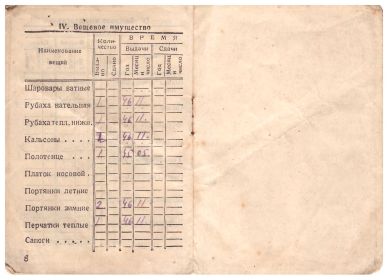 IV. Вещевое имущество
Наименование вещей
Количество
ВРЕМЯ
Выдачи
Сдачи
Выдано
Сдано
Год
Месяц и число
Год
Месяц и число
Шаровары ватные
Рубаха нательная 1 46 11.
Рубаха тепл. нижн. 1 46 11.
Кальсоны .... 46 11.
Полотенце ... 1 45 05.
Платок носовой.
Портянки летние
Портянки зимние 2 46 11.
Перчатки теплые 1 46 11.
Сапоги .....